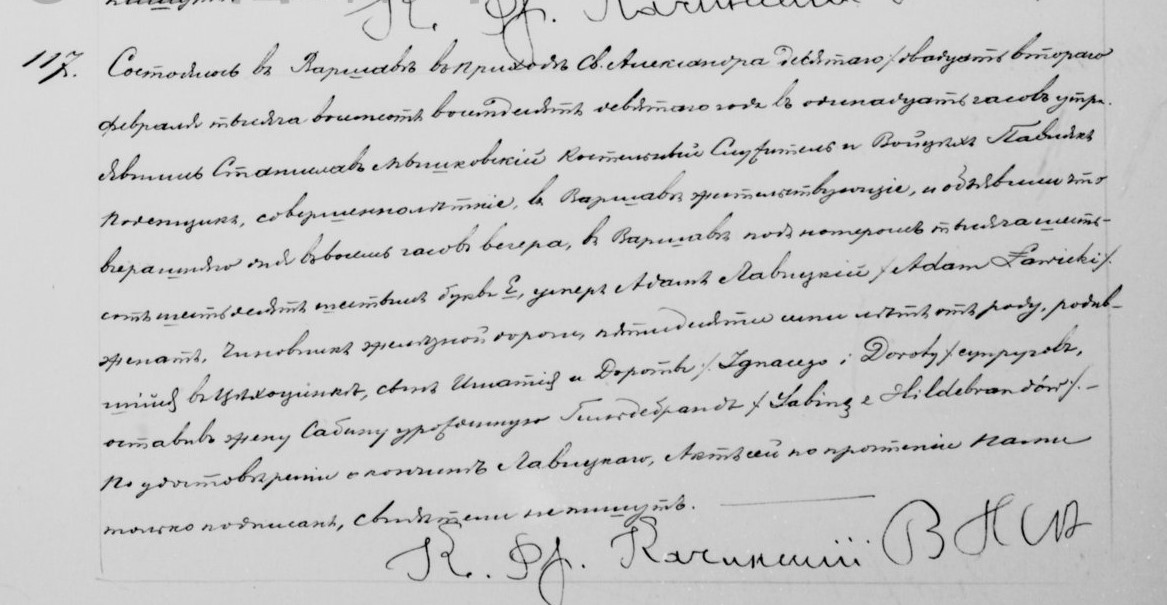 К. Ф. Качинскій
117. Состоялось въ Варшавѣ въ приходѣ Св. Александра девятаго / двадцать втораго
февраля тысяча восемьсотъ восемдесятъ девятаго года въ одинадцать часовъ утра.
Явились Станиславъ Мышковскій костельный служитель и Войцехъ Павлякъ
поденщикъ, совершеннолѣтніе, въ Варшавѣ жительствующіе, и объявили что
вчерашняго дня въ восемь часовъ вечера, въ Варшавѣ подъ номеромъ тысяча шесть-
сотъ шестьдесятъ шестымъ буква Е, умеръ Адамъ Лавицкій / Adam Ławicki /.
женатъ, чиновникъ желѣзной дороги, пятидесяти лѣтъ отъ роду, родив-
шійся въ Цѣхоцинкѣ, сынъ Игнатія и Дороты / Ignacego i Doroty / супруговъ,
оставивъ жену Сабину урожденную Гильдебрандъ / Sabinę z Hildebrandów /. –
По удостовѣреніи о кончинѣ Лавицкаго, Актъ сей по прочтеніи Нами
только подписанъ, свидѣтели не пишутъ.
К. Ф. Качинскій